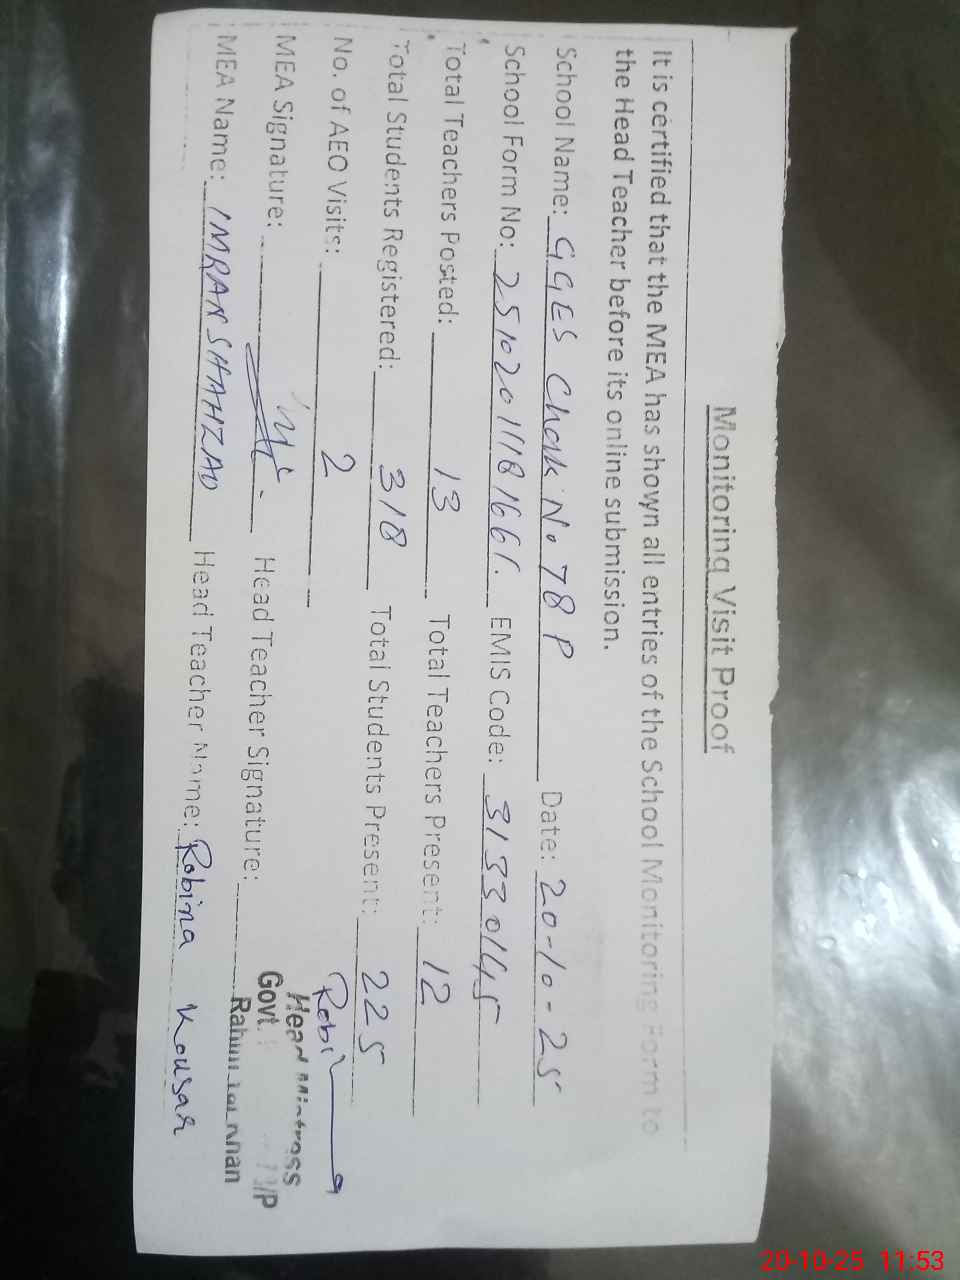 Monitoring Visit Proof
It is certified that the MEA has shown all entries of the School Monitoring Form to
the Head Teacher before its online submission.
School Name: GGES Chak No 78 P Date: 20-10-25
School Form No: EMIS Code: 31330145
Total Teachers Posted: 13 Total Teachers Present: 12
Total Students Registered: 318 Total Students Present: 225
No. of AEO Visits: 2
MEA Signature: Head Teacher Signature:
Head Mistress
Govt. /P
Rahim Yar Khan
MEA Name: IMRAN SHAHZAD Head Teacher Name: Robina Kousar
20-10-25 11:53